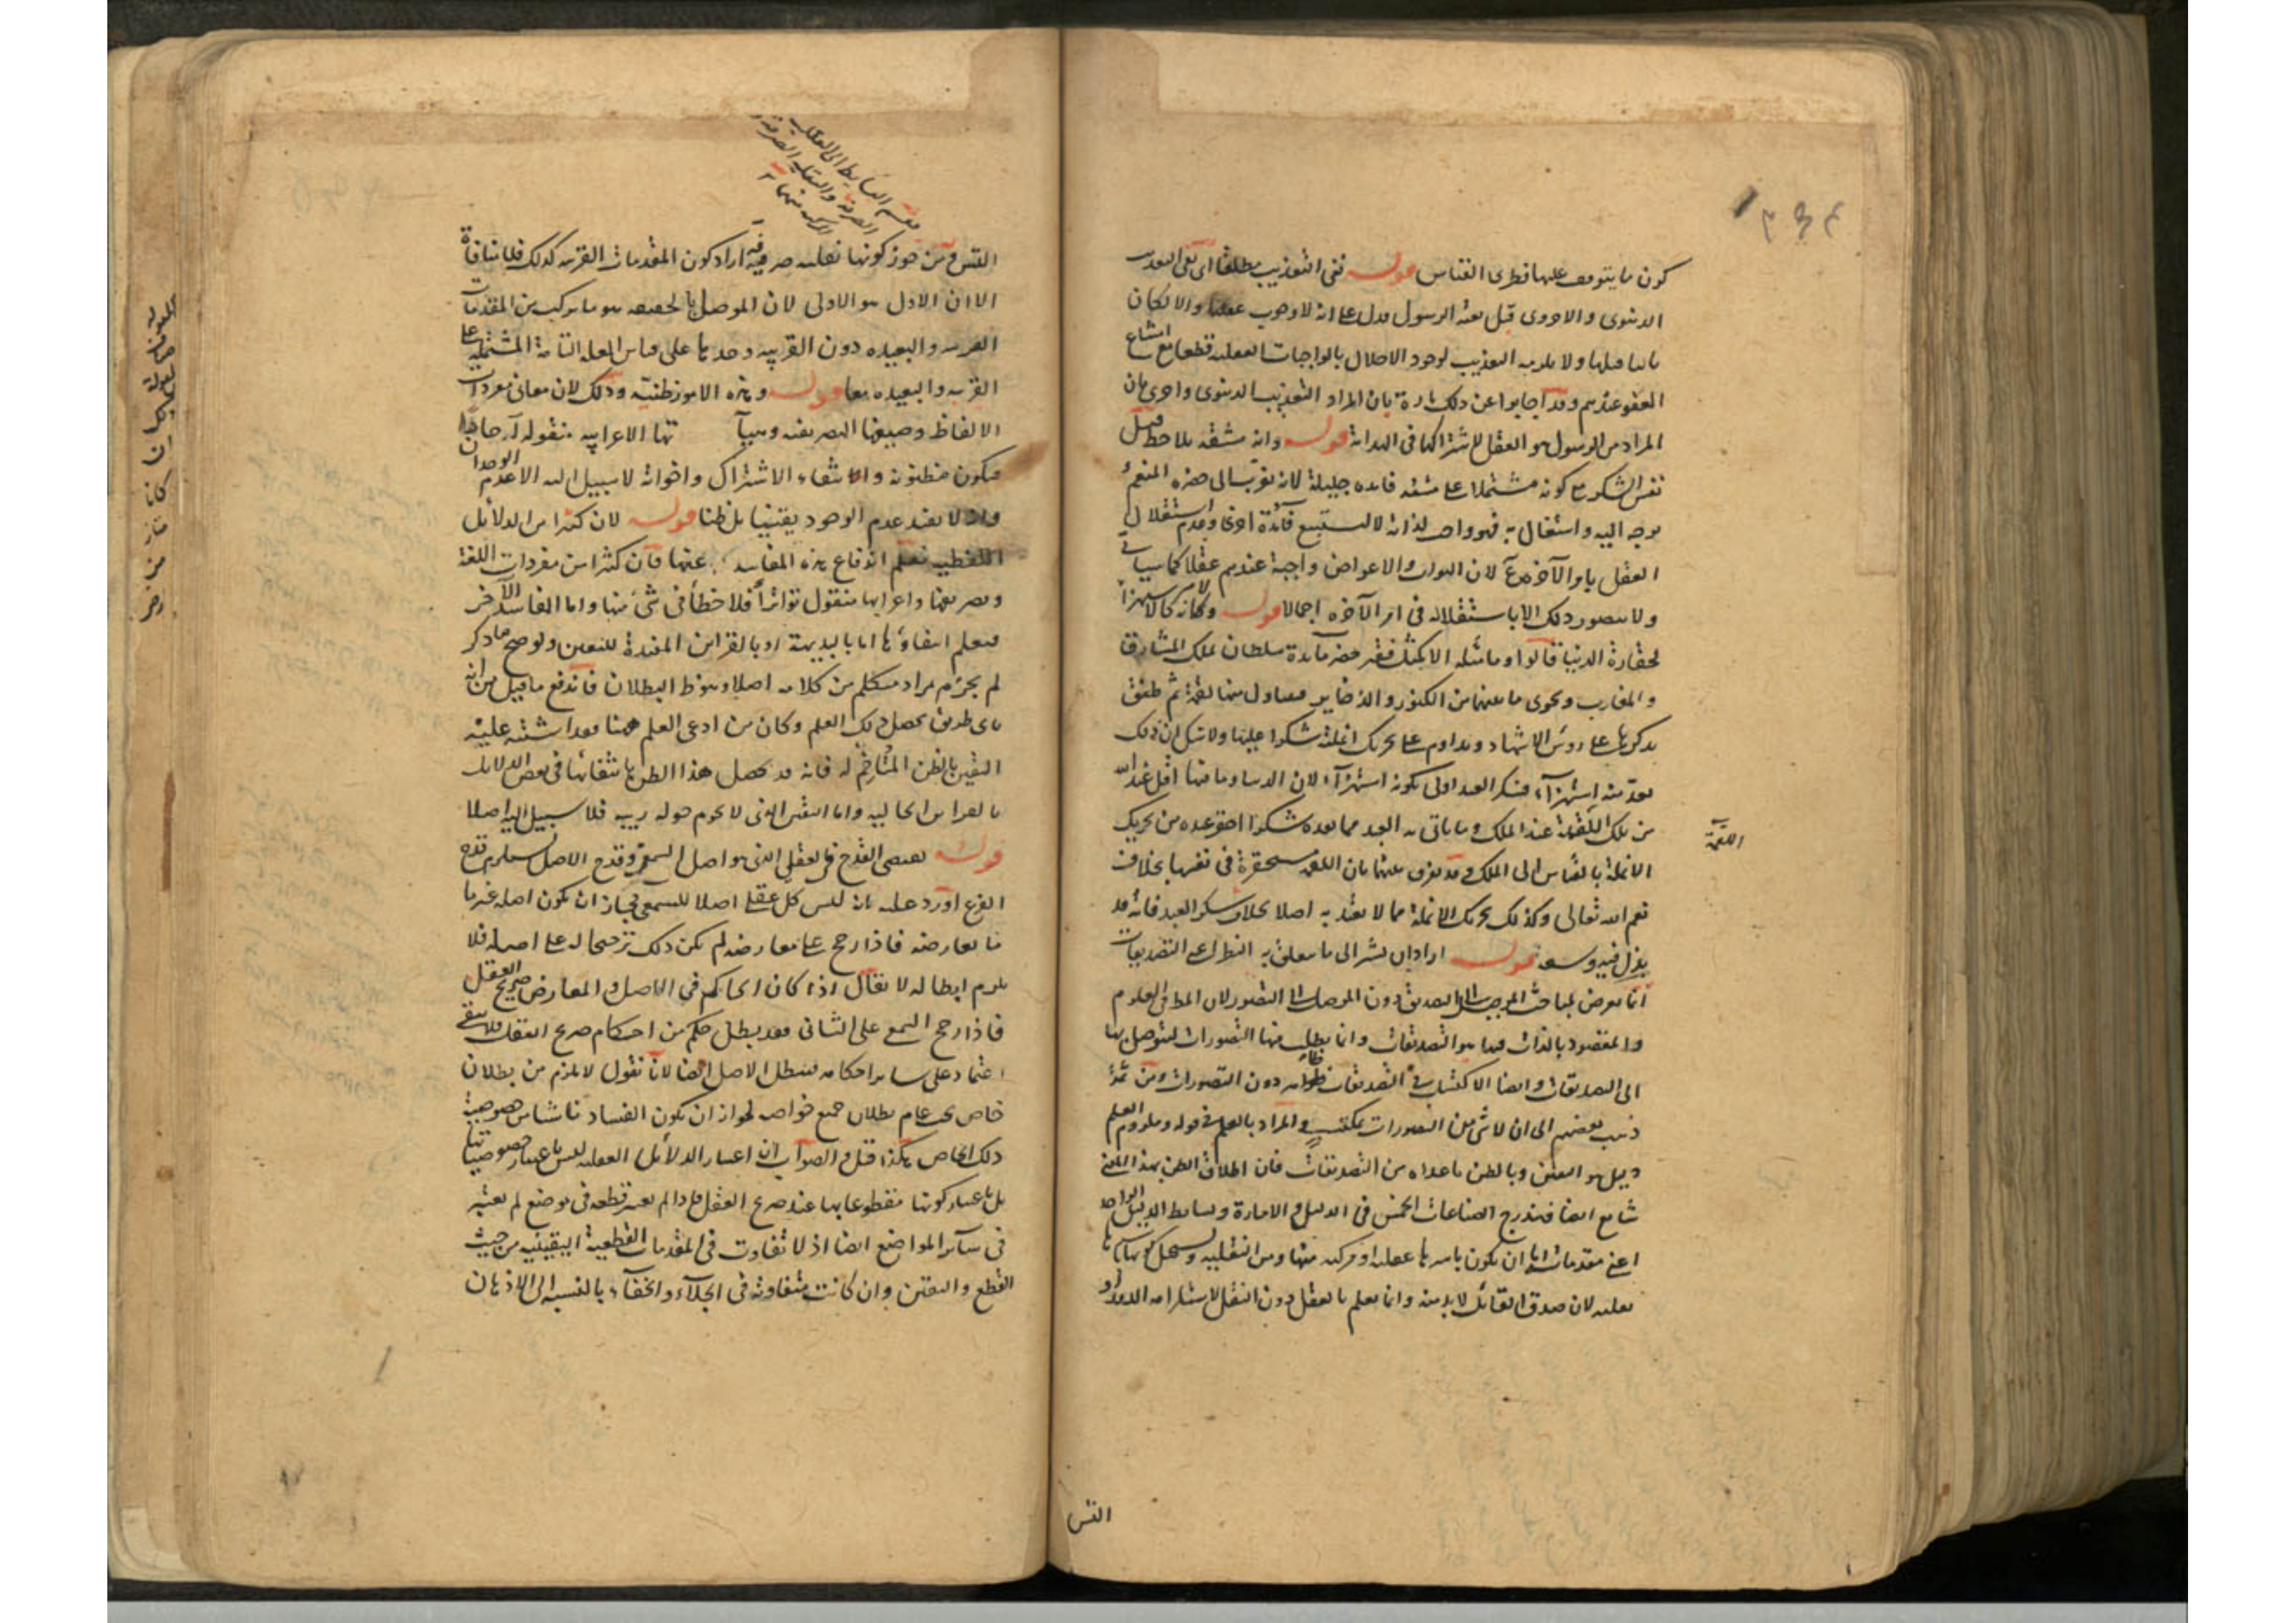 كون ما يتوقف عليها فطرى القياس قوله نفى التعذيب مطلقا اى نفى التعذيب
الدنيوى والاخروى قبل بعثة الرسول فدل على انه لا وجوب عقليا والا لكان
ثابتا قبلها ولا يلزمه التعذيب لوجود الاخلال بالواجبات العقلية قطعا مع امتناع
العفو عندهم وقد اجابوا عن ذلك تارة بان المراد التعذيب الدنيوى واخرى بان
المراد من الرسول هو العقل لاشتراكهما فى الهداية قوله وانه مشقة بلا حظ قيل
نفس الشكر مع كونه مشتملا على مشقة فايده جليلة لانه تقرب الى حضرة المنعم
توجه اليه واشتغال به فهو واجب لذاته لا لتستتبع فائدة اخرى وعدم استقلال
العقل بامر الآخرة مم لان الثواب والاعواض واجبة عندهم عقلا كما سياتى
ولا يتصور ذلك الا باستقلاله فى امر الآخرة اجمالا قوله وكانه كالاستهزاء
لحقارة الدنيا قالوا وما مثله الا كمثل فقير حضر مائدة سلطان ملك المشارق
والمغارب وحوى ما بينهما من الكنوز والذخاير فتناول منها لقمة ثم طفق
يذكرها على رؤس الاشهاد ويداوم على تحريك انملته شكرا عليها ولا شك ان ذلك
يعد منه استهزآء فشكر العبد اولى بكونه استهزآء لان الدنيا وما فيها اقل عند الله
من تلك اللقمة عند الملك وما ياتى به العبد مما يعده شكرا احقر عنده من تحريك
اللقمة
الانملة بالقياس الى الملك وقد يفرق بينهما بان اللقمة مستحقرة فى نفسها بخلاف
نعم الله تعالى وكذلك تحريك الانملة مما لا يعتد به اصلا بخلاف شكر العبد فانه قد
بذل فيه وسعه قوله اراد ان يشير الى ما يتعلق به النظر اعنى التصديقات
انما تعرض لمباحث الموصل الى التصديق دون الموصل الى التصور لان المط فى العلوم
والمقصود بالذات فيها هو التصديقات وانما يطلب منها التصورات ليتوصل بها
الى التصديقات وايضا الاكتساب فى التصديقات ظاهر دون التصورات ومن ثمة
ذهب بعضهم الى ان لا شئ من التصورات بمكتسب والمراد بالعلم فى قوله وملزوم العلم
دليل هو اليقين وبالظن ما عداه من التصديقات فان اطلاق الظن بهذا المعنى
شايع ايضا فيندرج الصناعات الخمس فى الدليل والامارة وبسايط الدليل الواحد
اعنى مقدماته اما ان يكون باسرها عقلية او مركبة منها ومن النقلية ويستحيل كونها باسرها
نقلية لان صدق القائل لا بد منه وانما يعلم بالعقل دون النقل لاستلزامه الدور او
التس
تقسيم البسايط الى العقلية
الصرفة والنقلية الصرفة و
المركبة منهما
التس ومن جوز كونها نقلية صرفة اراد كون المقدمات القريبة كذلك فلا منافاة
الا ان الاول هو الاولى لان الموصل بالحقيقة هو ما يركب من المقدمات
القريبة والبعيدة دون القريبة وحدها على قياس العلة التامة المشتملة على
القريبة والبعيدة معا قوله وهذه الامور ظنية وذلك لان معانى مفردات
الالفاظ وصيغها التصريفية وهيآتها الاعرابية منقولة آحادا
فيكون مظنونة وانتفاء الاشتراك واخواته لا سبيل اليه الا عدم الوجدان
وانه لا يفيد عدم الوجود يقينيا بل ظنا قوله لان كثيرا من الدلائل
اللفظية نعلم اندفاع هذه المفاسد عنها فان كثيرا من مفردات اللغة
وتصريفها واعرابها منقول تواترا فلا خطأ فى شئ منها واما المفاسد الاخر
فيعلم انتفاؤها اما بالبديهة او بالقراين المفيدة لليقين ولو صح ما ذكر
لم يجزم مراد متكلم من كلامه اصلا وهو ظ البطلان فاندفع ما قيل من انه
باى طريق يحصل ذلك العلم وكان من ادعى العلم ههنا فقد اشتبه عليه
اليقين بالظن المتاخم له فانه قد يحصل هذا الظن بانتفائها فى بعض الدلايل
بالقراين الحالية واما اليقين الذى لا يحوم حوله ريبة فلا سبيل اليه اصلا
قوله يقتضى القدح فى العقلى الذى هو اصل السمعى وقدح الاصل يستلزم قدح
الفرع اورد عليه بانه ليس كل عقلى اصلا للسمعى فجاز ان يكون اصله غير ما
يعارضه فاذا رجح على معارضه لم يكن ذلك ترجيحا له على اصله فلا
يلزم ابطاله لا يقال اذا كان الحاكم فى الاصل والمعارض صريح العقل
فاذا رجح السمع على الثانى فقد بطل حكم من احكام صريح العقل فلا يبقى
اعتماد على سائر احكامه فيبطل الاصل ايضا لانا نقول لا يلزم من بطلان
خاص تحت عام بطلان جميع خواصه لجواز ان يكون الفساد ناشئا من خصوصية
ذلك الخاص هكذا قيل والصواب ان اعتبار الدلائل العقلية ليس باعتبار خصوصياتها
بل باعتبار كونها مقطوعا بها عند صريح العقل فاذا لم يعتبر قطعه فى موضع لم يعتبر
فى سائر المواضع ايضا اذ لا تفاوت فى المقدمات القطعية اليقينية من حيث
القطع واليقين وان كانت متفاوتة فى الجلاء والخفاء بالنسبة الى الاذهان